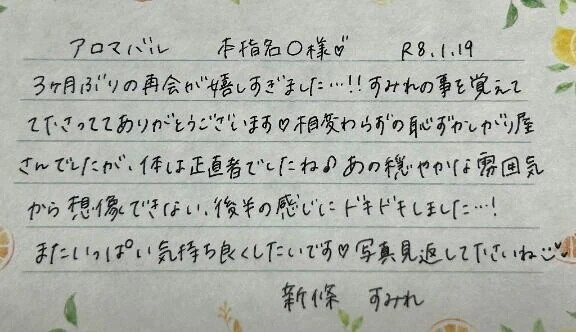 アロマバル 本指名〇様♡ R8.1.19
3ヶ月ぶりの再会が嬉しすぎました…!! すみれの事を覚えて
てたさっててありがとうございます♡相変わらずの恥ずかしがり屋
さんでしたが、体は正直者でしたね♪あの穏やかな雰囲気
から想像できない、後半の感じにドキドキしました…!
またいっぱい気持ち良くしたいです♡写真見返してたさいね
新條 すみれ